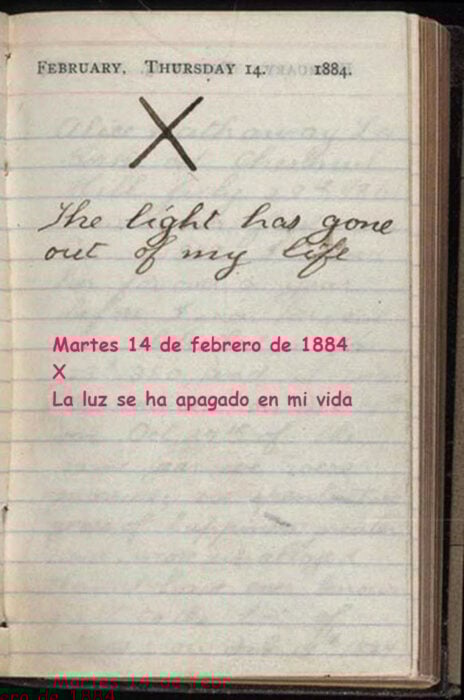 FEBRUARY, THURSDAY 14. 1884.
X
The light has gone
out of my life
Martes 14 de febrero de 1884
X
La luz se ha apagado en mi vida
Martes 14 de febr
ero de 1884